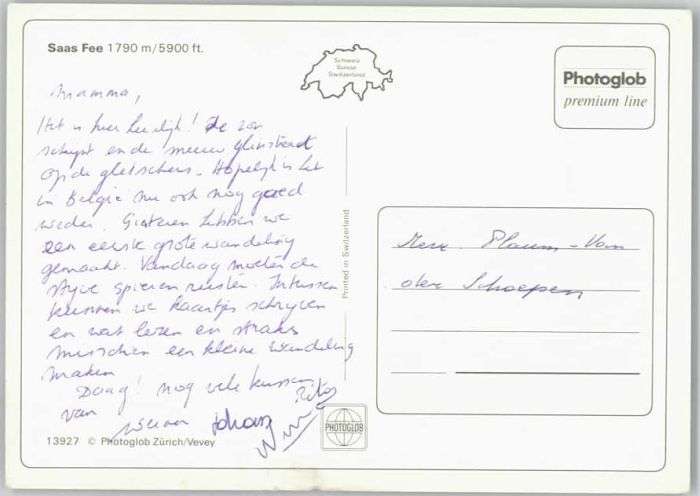 Saas Fee 1790 m/5900 ft.
Schweiz
Suisse
Switzerland
Photoglob
premium line
Mamma,
Het is hier heerlijk! De zon
schijnt en de sneeuw glinstert
op de gletschers. Hopelijk is het
in België nu ook nog goed
weder. Gisteren hebben we
een eerste grote wandeling
gemaakt. Vandaag moeten de
stijve spieren rusten. Intussen
kunnen we kaartjes schrijven
en wat lezen en straks
misschien een kleine wandeling
maken
Daag! nog vele kussen
van
Johan
Printed in Switzerland
Mevr. Van
der Schoepen
PHOTOGLOB
13927 © Photoglob Zürich/Vevey